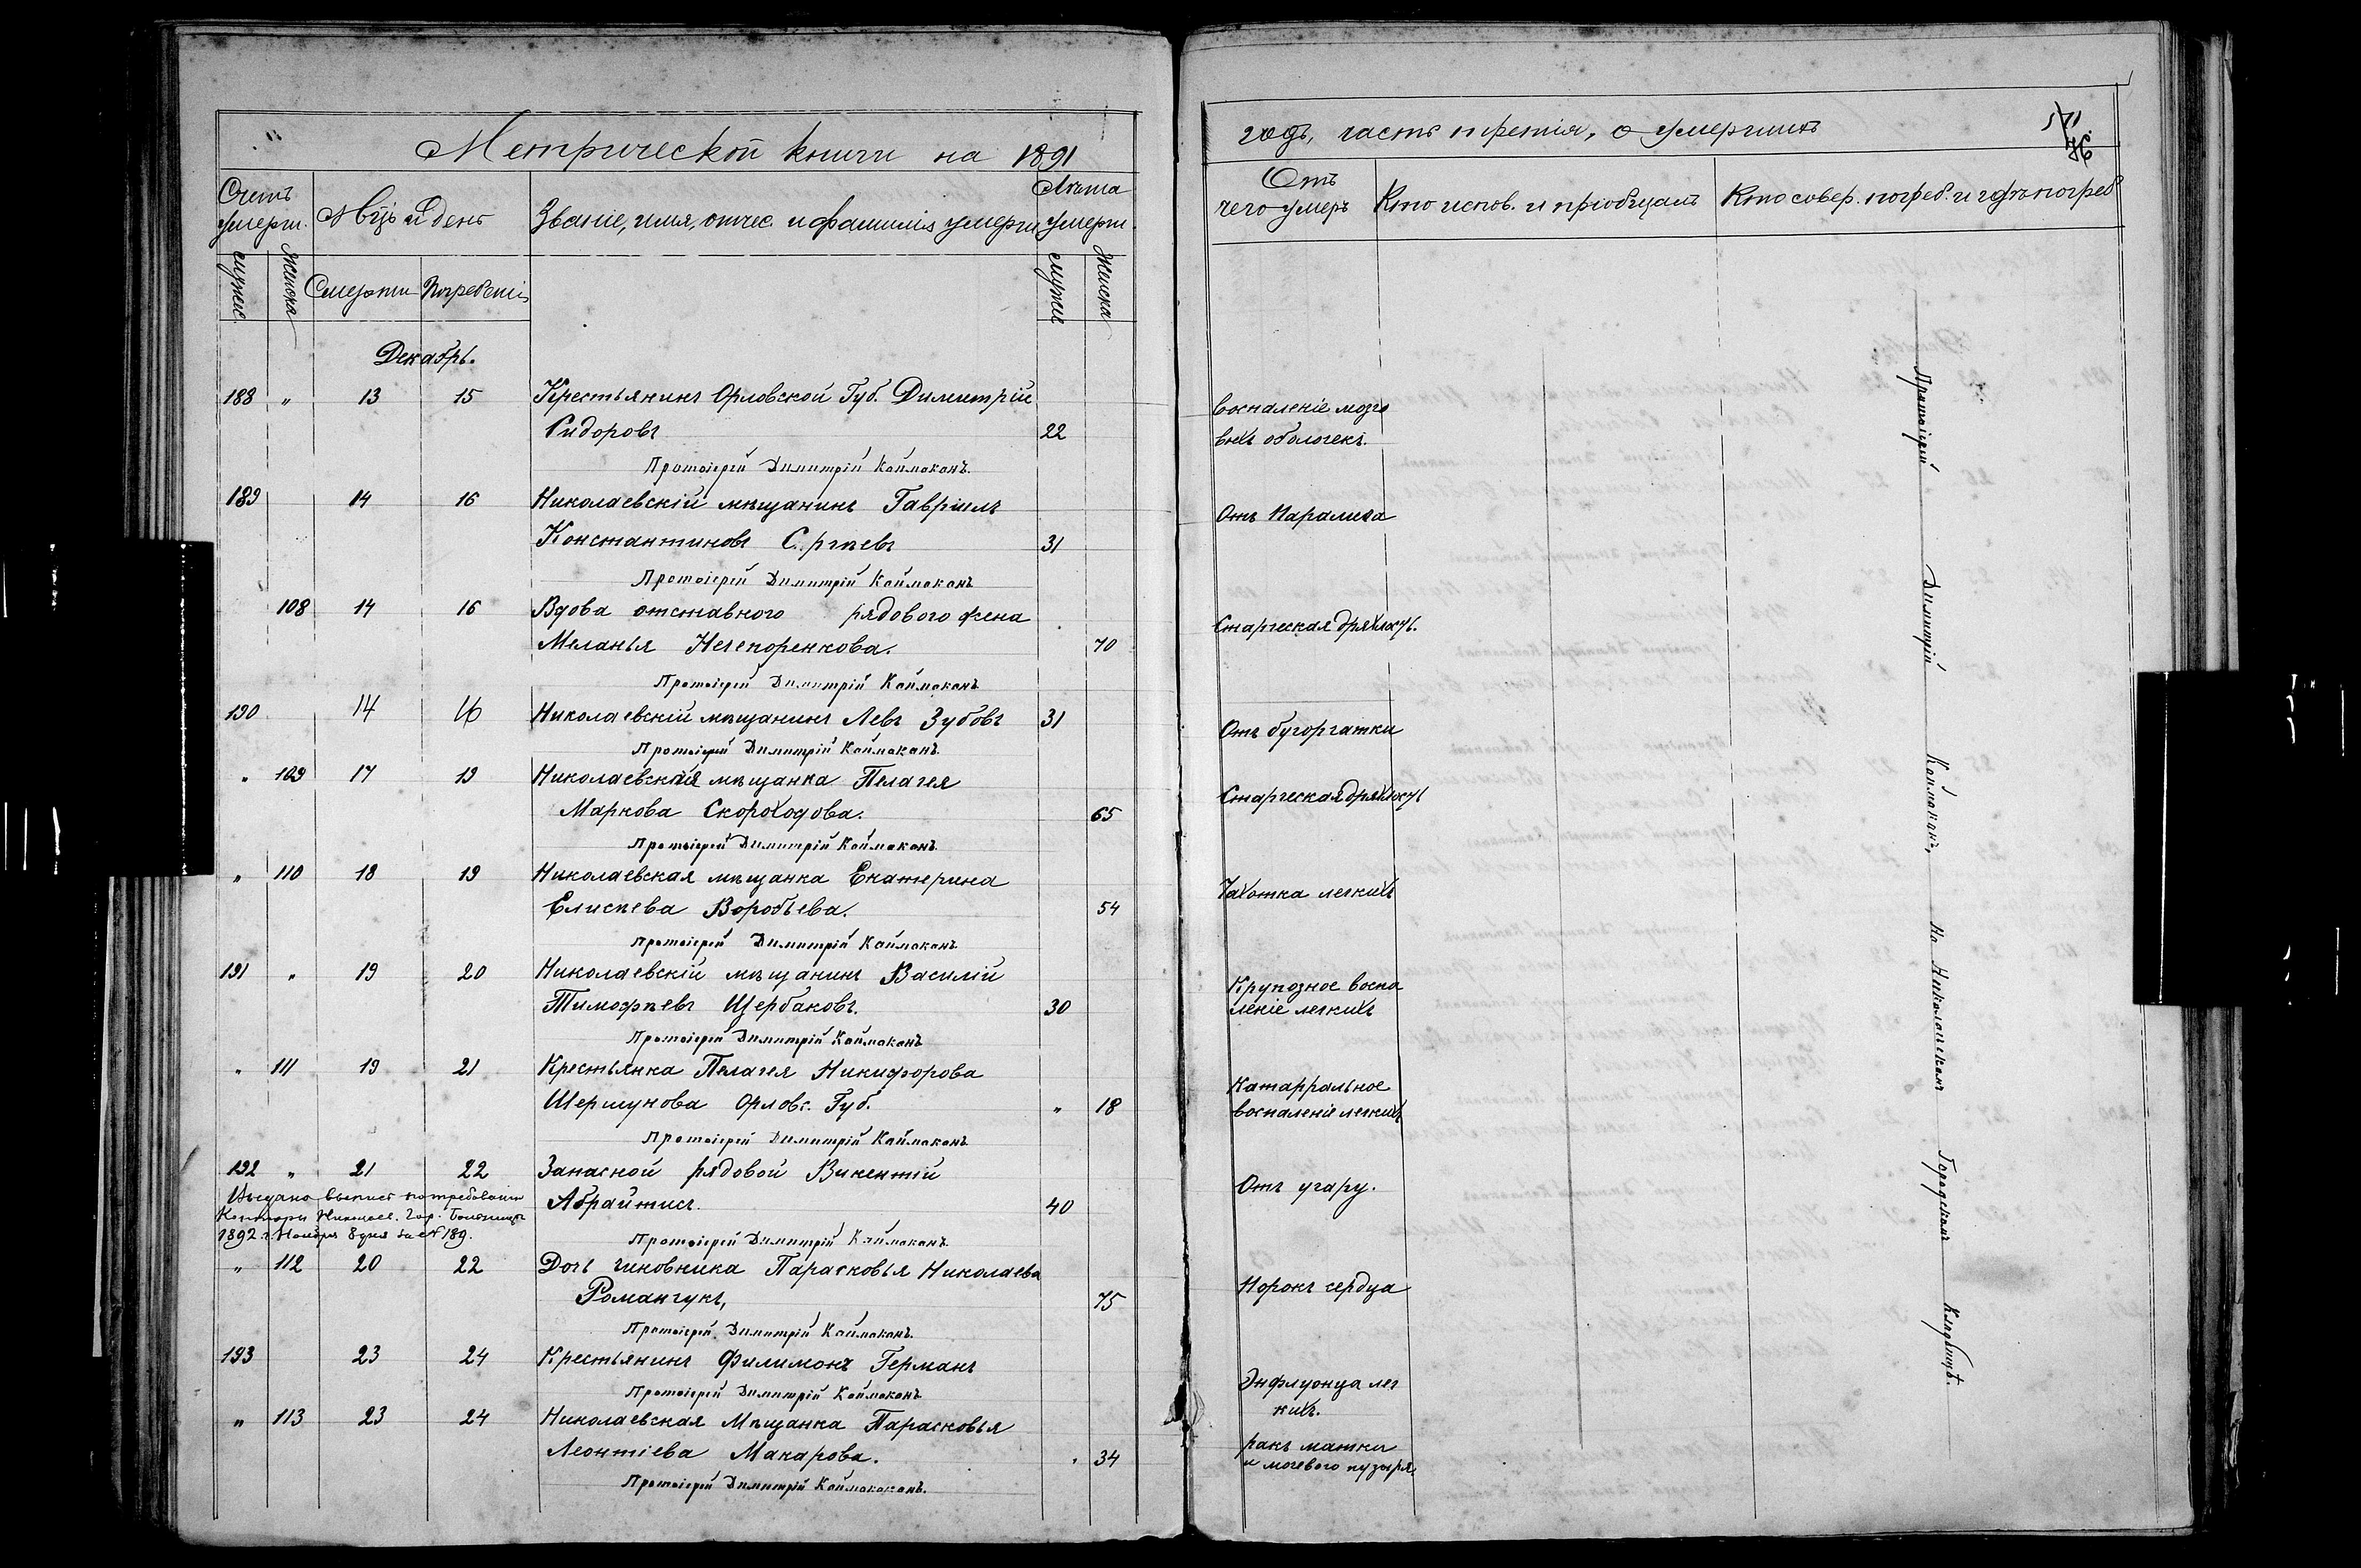 Метрической книги на 1891
Счетъ умерш.
Мѣц. и день
Званіе, имя, отчес. и фамилія умерш
Лѣта умерш.
мужес.
женска
Смерти
Погребенія
мужес
женска
Декабрь.
188 " 13 15 Крестьянинъ Орловской Губ. Димитрій
Сидоровъ 22
Протоіерей Димитрій Каймаканъ.
189 14 16 Николаевскій мѣщанинъ Гавріилъ
Константиновъ Сергѣевъ 31
Протоіерей Димитрій Каймаканъ
108 14 16 Вдова отставного рядового жена
Меланья Нечепоренкова. 70
Протоіерей Димитрій Каймаканъ
190 14 16 Николаевскій мѣщанинъ Левъ Зубовъ 31
Протоіерей Димитрій Каймаканъ.
" 109 17 19 Николаевская мѣщанка Пелагея
Маркова Скороходова. 65
Протоіерей Димитрій Каймаканъ.
" 110 18 19 Николаевская мѣщанка Екатерина
Елисѣева Воробьева. 54
Протоіерей Димитрій Каймаканъ
191 " 19 20 Николаевскій мѣщанинъ Василій
Тимофѣевъ Щербаковъ. 30
Протоіерей Димитрій Каймаканъ
" 111 19 21 Крестьянка Пелагея Никифорова
Шершукова Орловс. Губ. " 18
Протоіерей Димитрій Каймаканъ
192 " 21 22 Запасной рядовой Викентій
Абрайтисъ. 40
Выдана выпись по требованію
Конторы Николаев. Гор. Больницы
1892 г. Ноября 8 дня за № 189.
Протоіерей Димитрій Каймаканъ.
" 112 20 22 Дочь чиновника Парасковья Николаева
Романчукъ, 75
Протоіерей Димитрій Каймаканъ.
193 23 24 Крестьянинъ Филимонъ Германъ
Протоіерей Димитрій Каймаканъ
" 113 23 24 Николаевская Мѣщанка Парасковья
Леонтіева Макарова. " 34
Протоіерей Димитрій Каймакаканъ.
годъ, часть третія, о умершихъ
76
Отъ чего умеръ
Кто испов. и пріобщалъ
Кто совер. погреб. и гдѣ погреб
Воспаленіе мозго
выхъ оболочекъ.
Отъ Паралича
Старческая дряхлость.
Отъ бугорчатки
Старческая дряхлость
Чахотка легкихъ
Крупозное воспа
леніе легкихъ
Катарральное
воспаленіе легкихъ
Отъ угару.
Порокъ сердца
Энфлуэнца лег
кихъ.
ракъ матки
и мочевого пузыря
Протоіерей Димитрій Каймаканъ, На Николаевскомъ Городскомъ Кладбищѣ.